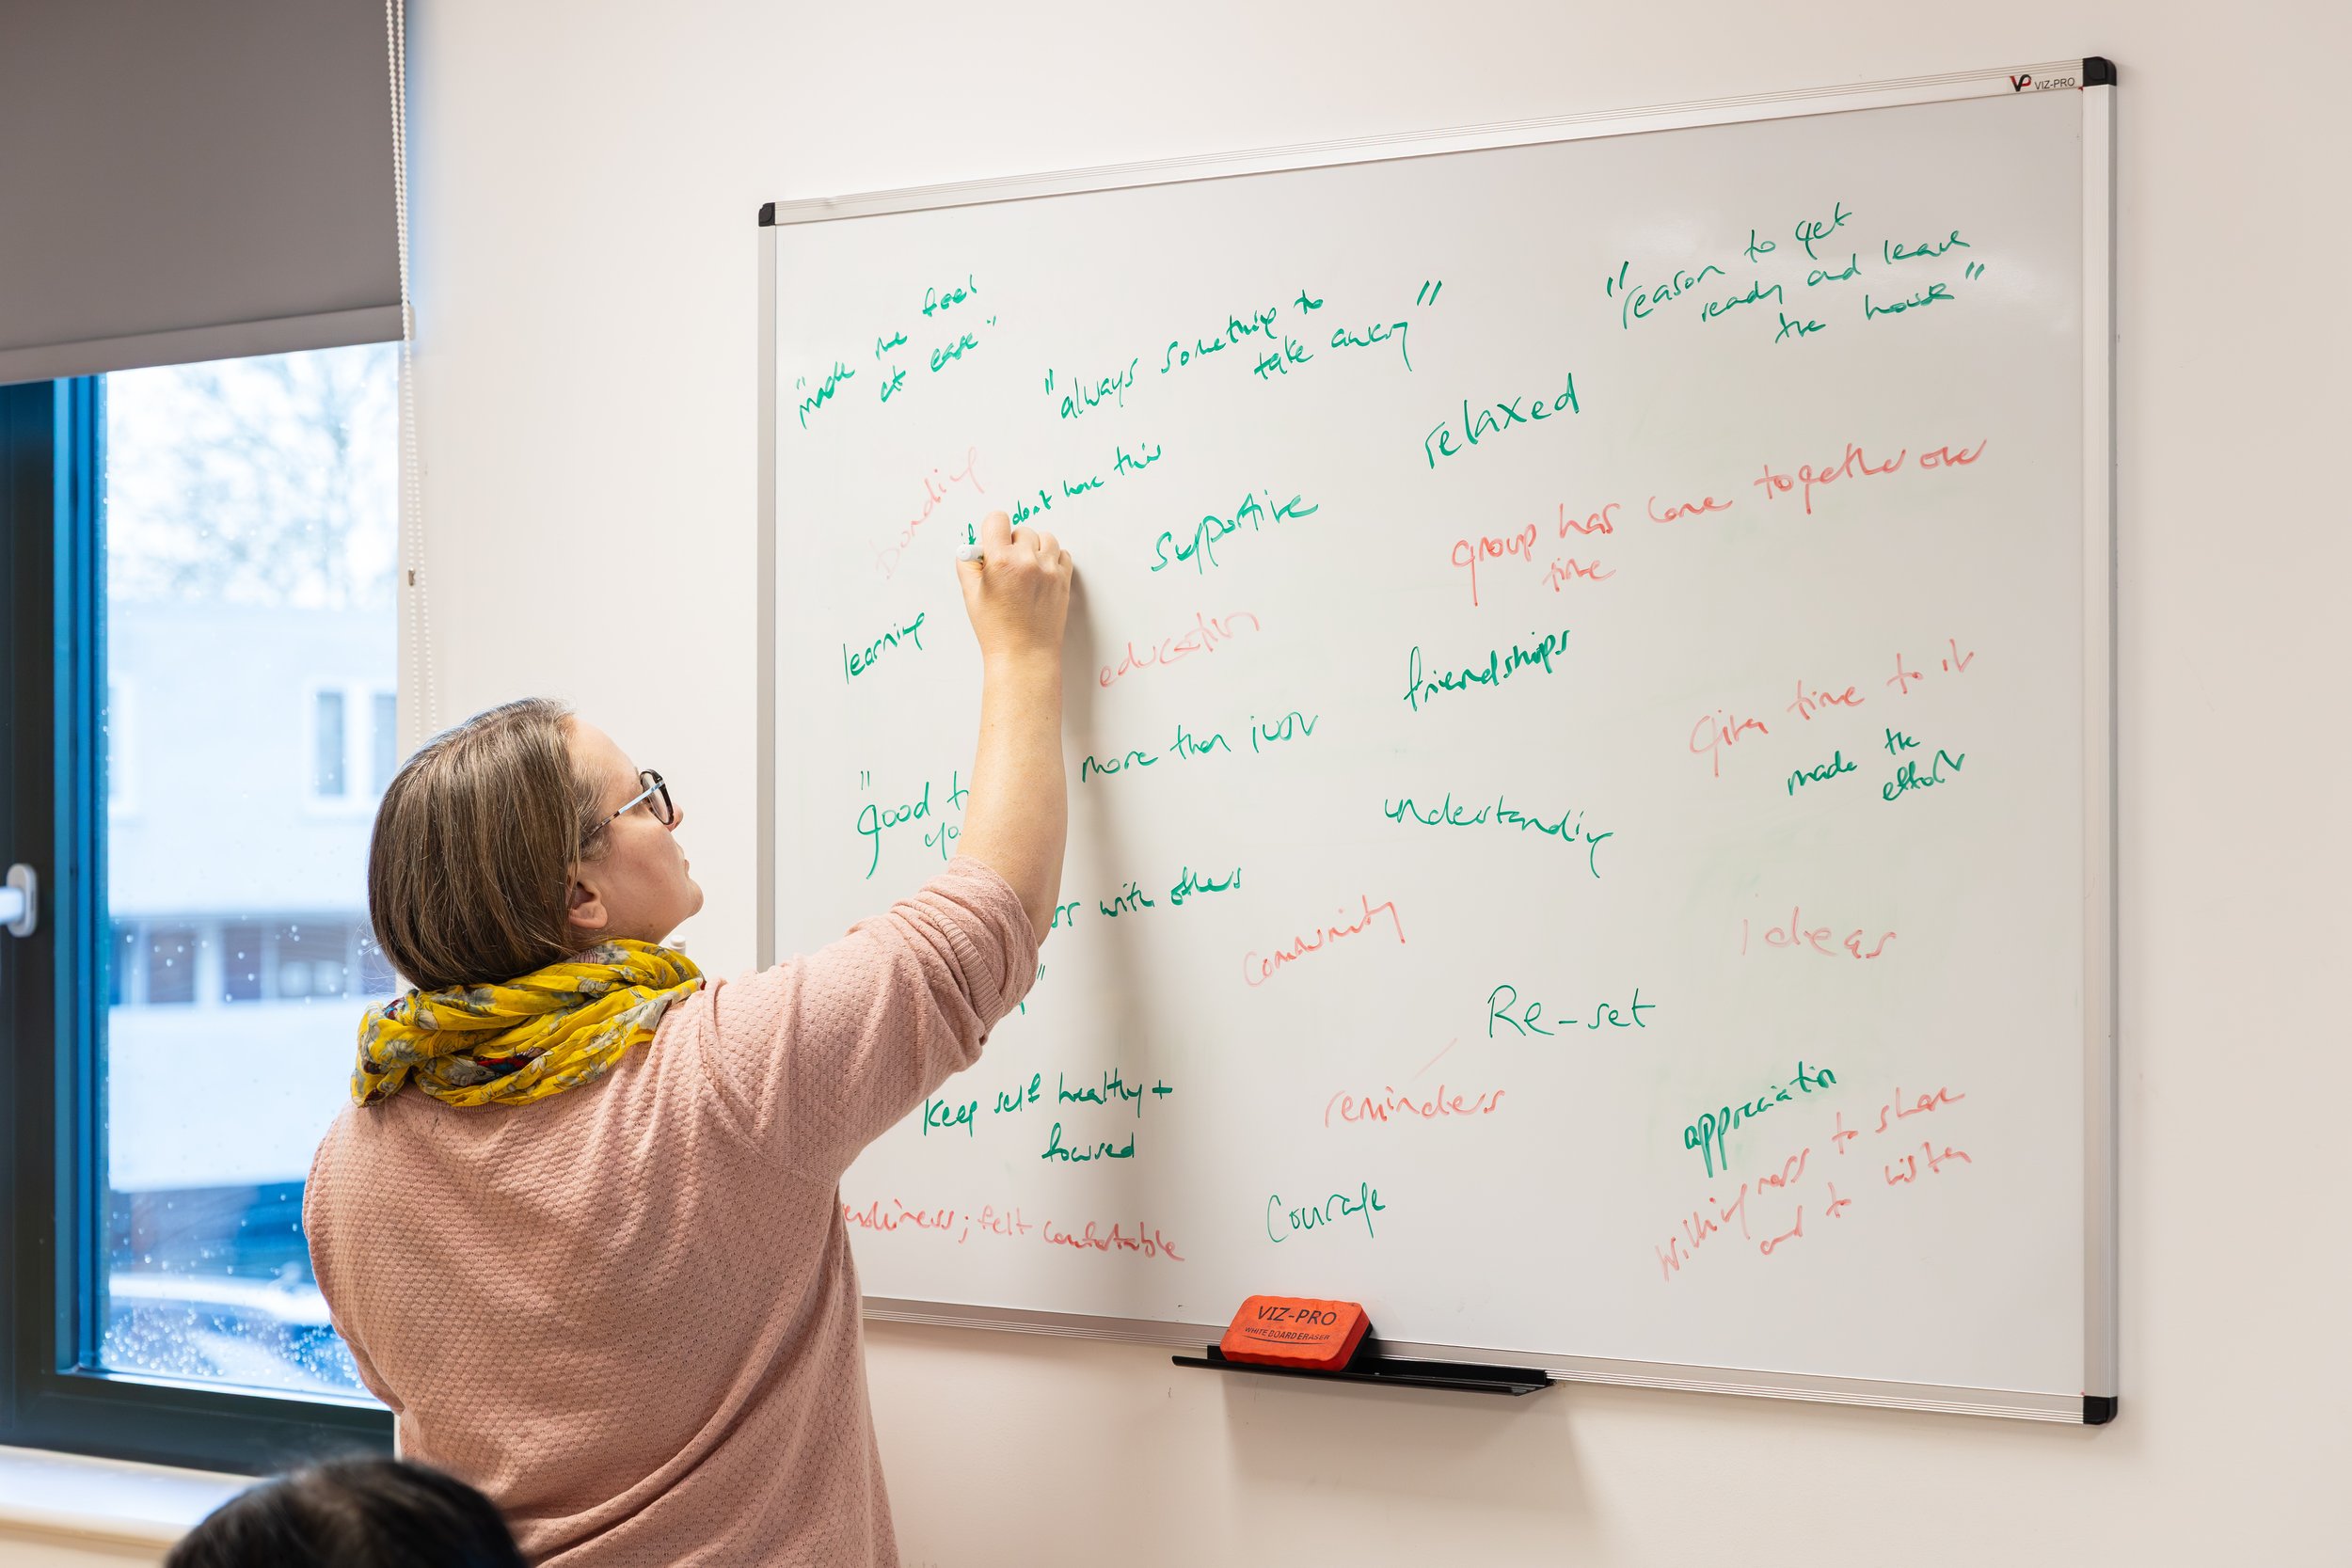 VIZ-PRO
"reason to get
ready and leave
the house"
"made me feel
at ease"
"always something to
take away"
relaxed
bonding
if don't have this
supportive
group has come together over
time
learning
education
friendships
given time to it
made the
effort
"good
more than just
understanding
with others
community
ideas
Re-set
keep self healthy +
focused
reminders
appreciation
willingness to share
and to listen
courage
; felt comfortable
VIZ-PRO
WHITEBOARD ERASER